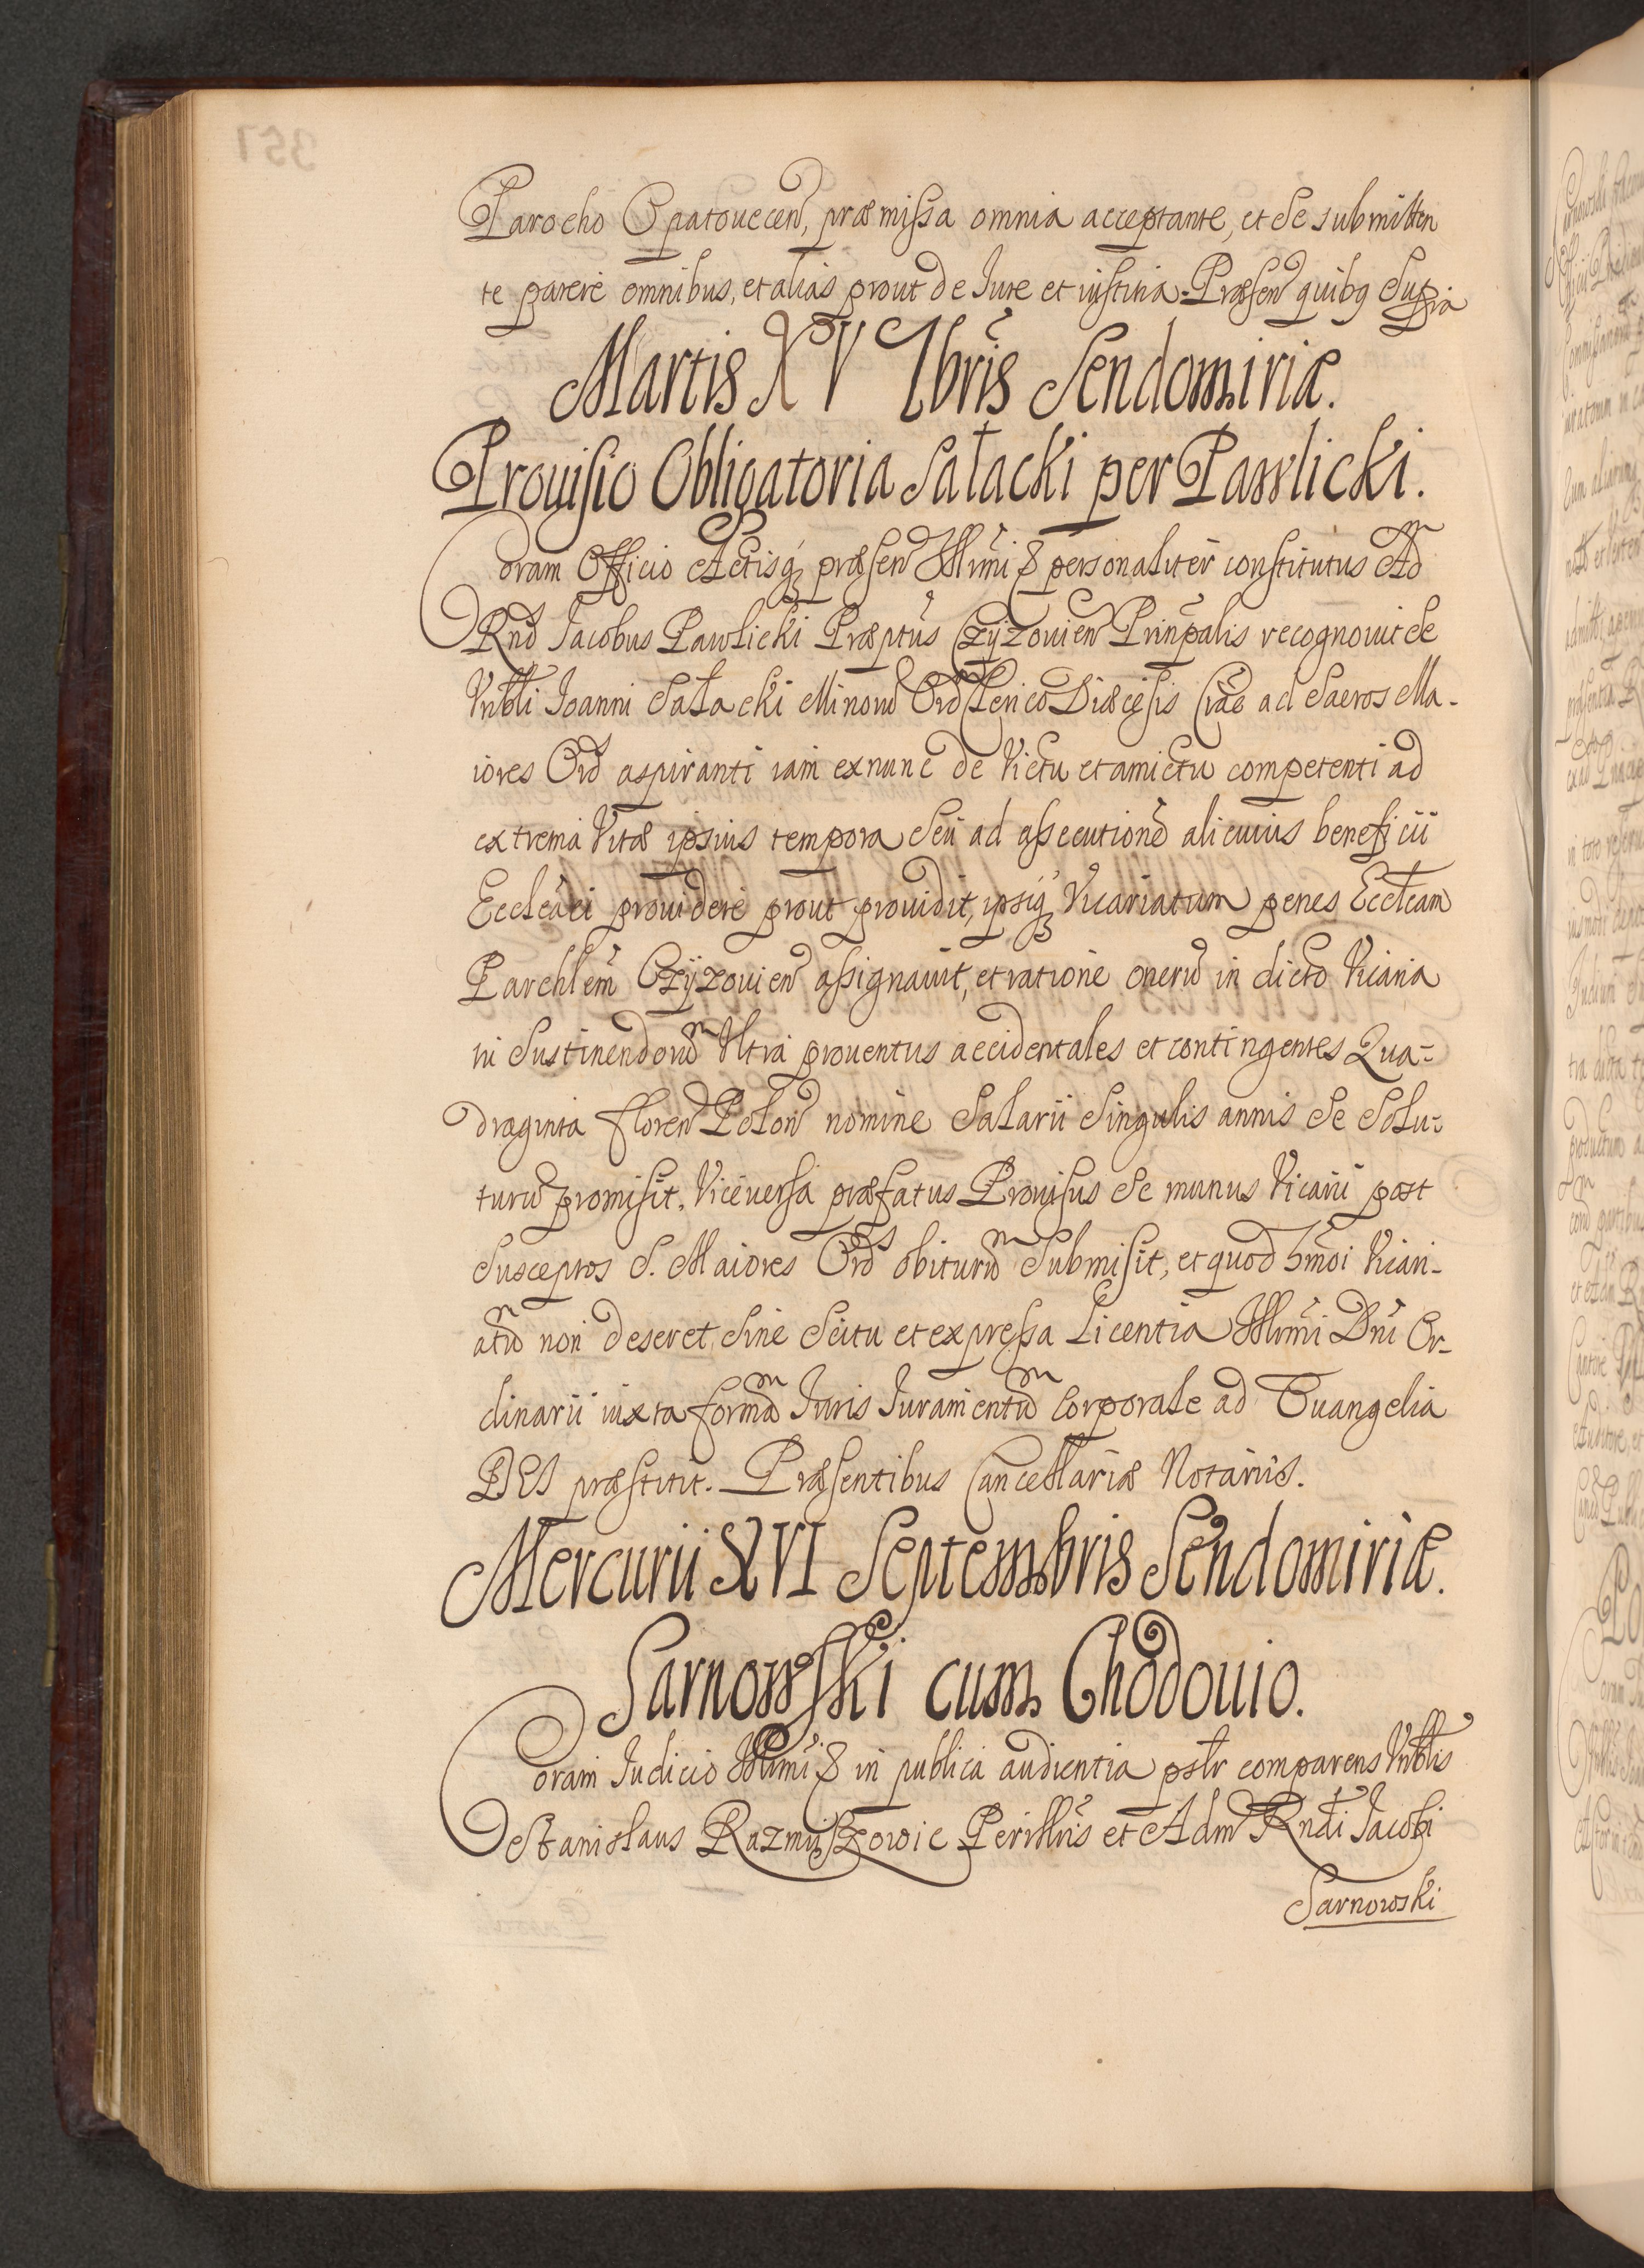 Parocho Opatouecen, præmissa omnia acceptante, et se submitten
te parere omnibus, et alias prout de Iure et iustitia. Præsen quibq supra
Martis XV 7bris Sendomiriæ.
Prouisio Obligatoria Sałacki per Pawlicki.
Coram Officio Actisq præsen Illrmi &c personaliter constitutus Ad
Rnd Jacobus Pawlicki Præptus Czyzouien Prinpalis recognouit se
Vnbli Ioanni Sałacki Minorum Ord Clerico Diæcesis Crac ad Sacros Ma-
iores Ord aspiranti iam exnunc de Victu et amictu competenti ad
extrema Vitæ ipsius tempora seu ad assecutione alicuius beneficii
Eccleãci prouidere prout prouidit, ipsiq Vicariatum penes Eccleam
Parchlem Czyzouien assignauit, et ratione oneru in dicto Vicaria
tu Sustinendoru Vltra prouentus accidentales et contingentes Qua-
draginta floren Polon nomine Salarii Singulis annis se solu-
turu promisit. Viceuersa præfatus Prouisus se munus Vicarii post
Susceptos S. Maiores Ord obituru Submisit, et quod hmoi Vicari-
atu non deseret Sine Scitu et expressa Licentia Illrmi Dni Or-
dinarii iuxta forma Iuris Iuramentu Corporale ad Euangelia
DEI præstitit. Præsentibus Cancellariæ Notariis.
Mercurii XVI Septembris Sendomiriæ.
Sarnowski cum Chodouio.
Coram Iudicio Illrmi &c in publica audientia pslr comparens Vnblis
Stanislaus Razmuszowic Perillris et Adm Rndi Jacobi
Sarnowski